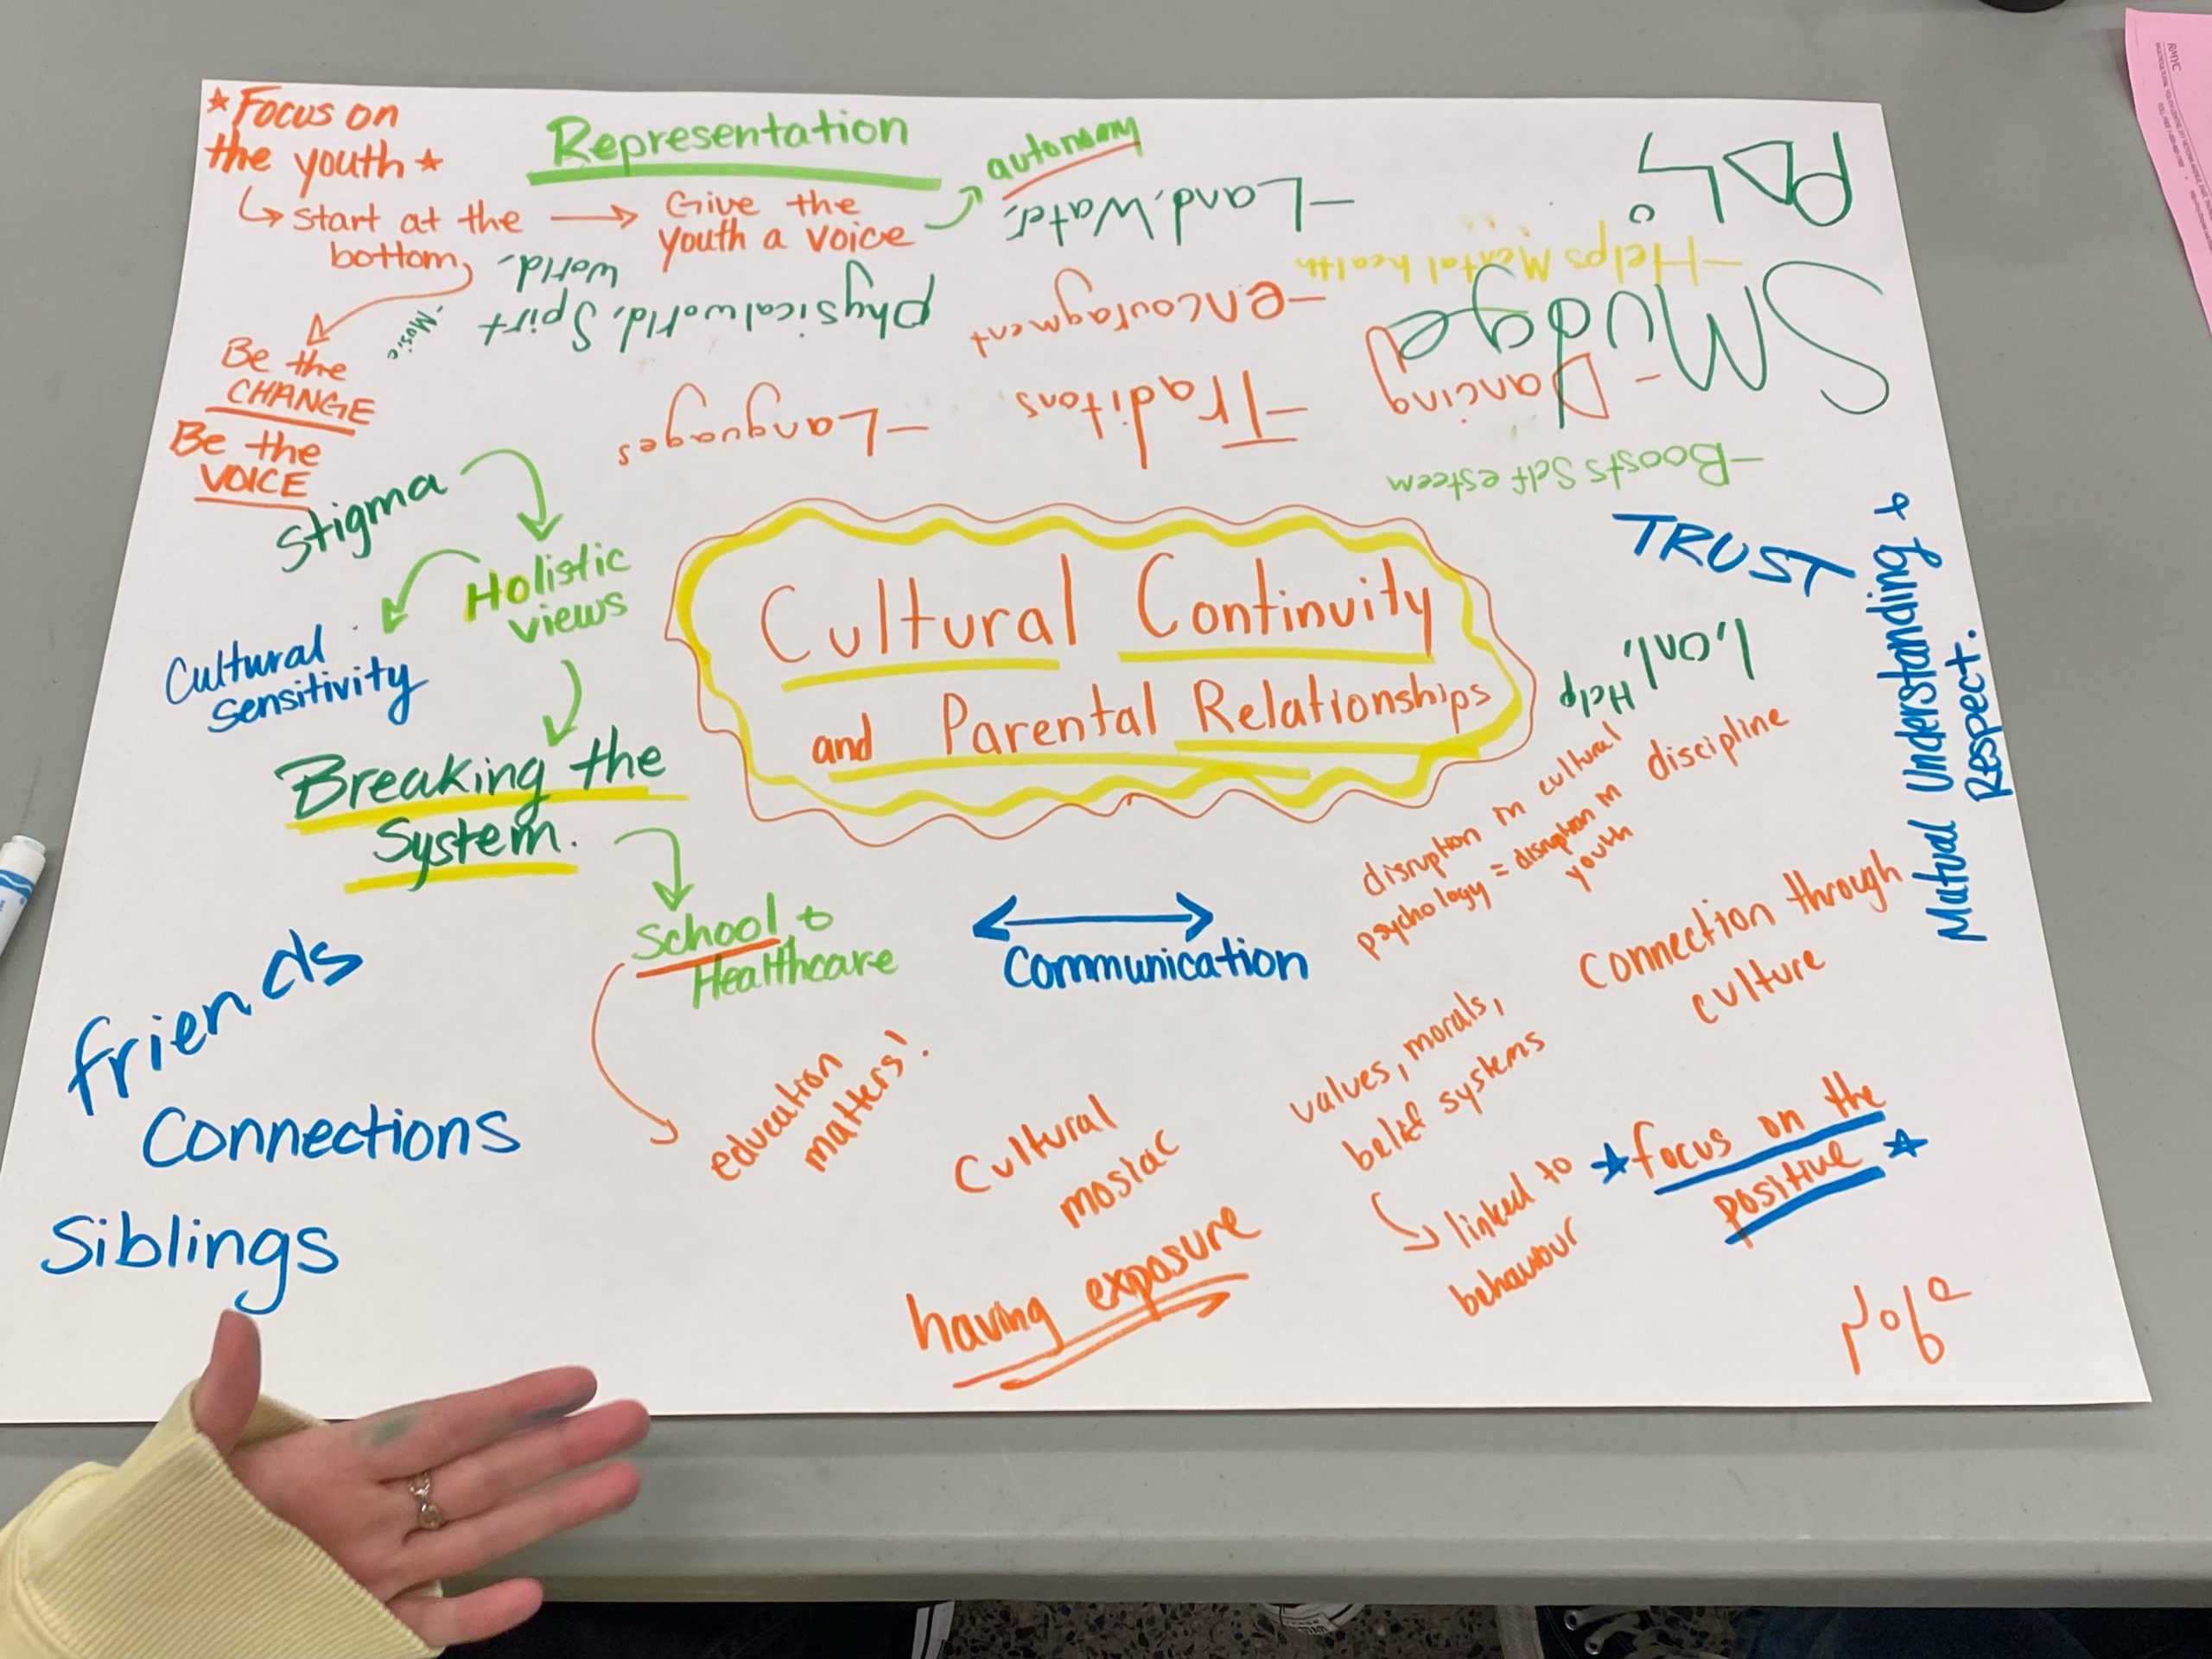 ★Focus on
the youth★
↳ start at the
bottom
→ Give the
youth a voice
autonomy
Representation
Be the
CHANGE
Be the
VOICE
Smudge
- Helps Mental health
- Boosts Self esteem
- Dancing
- Traditons
- encouragment
- Land, Water,
physical world, Spirt
world.
- Languages
- Music
Stigma
Holistic
views
Cultural
Sensitivity
Breaking the
System.
School &
Healthcare
education
matters!
Cultural Continuity
and Parental Relationships
TRUST
Mutual Understanding &
Respect.
Help
disruption in cultural
psychology = disruption in discipline
youth
Communication
Connection through
culture
values, morals,
belief systems
linked to
behaviour
★focus on the
positive★
Cultural
mosiac
having exposure
friends
Connections
Siblings
RMYC